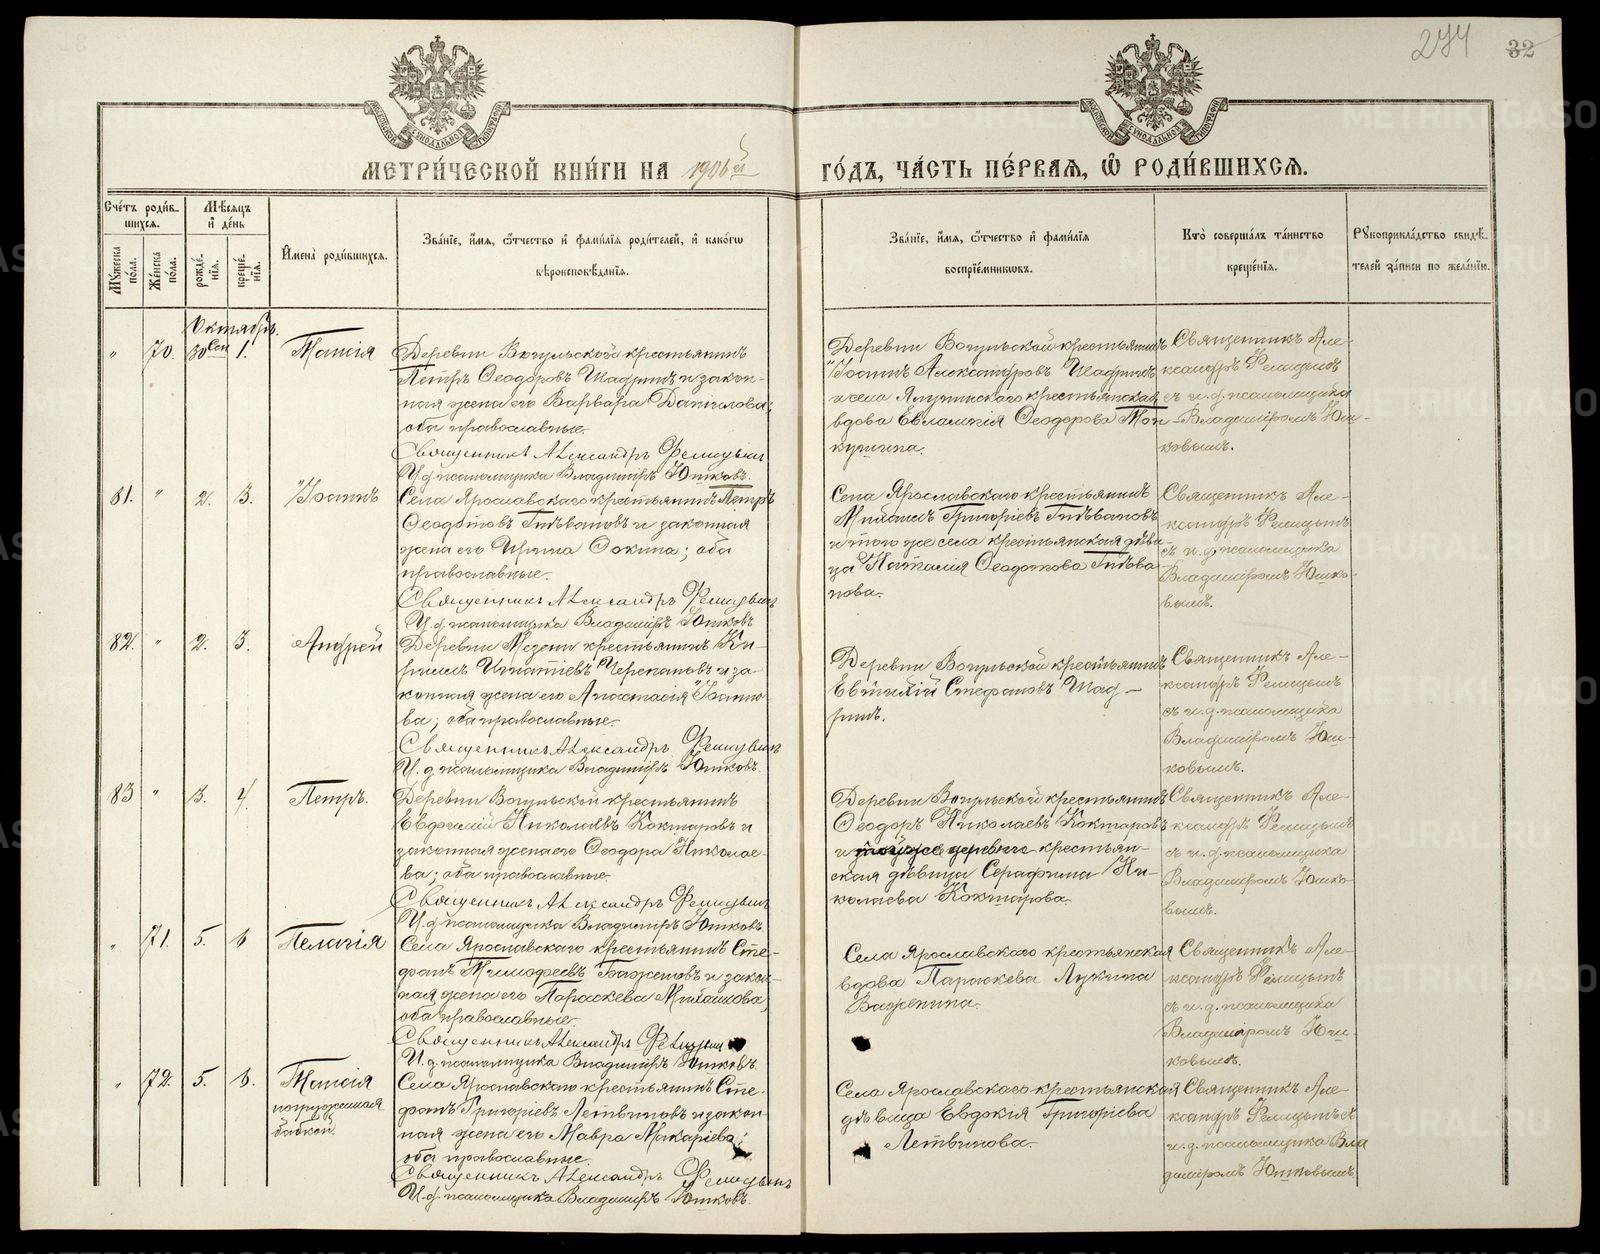 274 32
МЕТРИ́ЧЕСКОЙ КНИ́ГИ НА 1906й ГО́ДЪ, ЧА́СТЬ ПЕ́РВАЯ, Ѡ РОДИ́ВШИХСЯ.
Сче́тъ роди́в-
шихся.
Му́жеска пола.
Же́нска пола.
Мѣ́сяцъ
и҆ де́нь
рожде́-
нїѧ.
креще́-
нїѧ.
И҆мена̀ роди́вшихся.
Зва́нїе, и҆́мя, ѻ҆́тчество и҆ фами́лїѧ роди́телей, и҆ како́гѡ
вѣроисповѣ́данїѧ.
Зва́нїе, и҆́мя, ѻ҆́тчество и҆ фами́лїѧ
воспрїе́мниковъ.
Кто̀ соверша́лъ та́инство
креще́нїѧ.
Рꙋкоприкла́дство свидѣ́-
телей за́писи по жела́нїю.
Октябрь.
" 70. 30 Сен 1. Таисія
Деревни Вогульской крестьянинъ
Петръ Ѳеодоровъ Шадринъ и закон-
ная жена его Варвара Данилова;
оба православные.
Священникъ Александръ Фелицынъ
И. д. псаломщика Владиміръ Юшковъ.
Деревни Вогульской крестьянинъ
Іоаннъ Александровъ Шадринъ
и села крестьянская
вдова Евлампія Ѳеодорова Мок-
Священникъ Але-
ксандръ Фелицынъ
съ и. д. псаломщика
Владиміромъ Юш-
ковымъ.
81. " 2. 3. Іоаннъ
Села Ярославскаго крестьянинъ Петръ
Ѳеодотовъ Гилѣвановъ и законная
жена его Ирина Фокина; оба
православные.
Священникъ Александръ Фелицынъ
И. д. псаломщика Владиміръ Юшковъ
Села Ярославскаго крестьянинъ
Михаилъ Григоріевъ Гилѣвановъ
и того же села крестьянская дѣви-
ца Наталія Ѳеодотова Гилѣва-
нова.
Священникъ Але-
ксандръ Фелицынъ
съ и. д. псаломщика
Владиміромъ Юшко-
вымъ.
82. " 2. 3. Андрей
Деревни Мезени крестьянинъ Ки-
риллъ Игнатіевъ Черепановъ и за-
конная жена его Анастасія Іоанно-
ва; оба православные.
Священникъ Александръ Фелицынъ
И. д. псаломщика Владиміръ Юшковъ.
Деревни Вогульской крестьянинъ
Евѳимій Стефановъ Шад-
ринъ.
Священникъ Але-
ксандръ Фелицынъ
съ и. д. псаломщика
Владиміромъ Юш-
ковымъ.
83 " 3. 4. Петръ.
Деревни Вогульской крестьянинъ
Евѳимій Николаевъ Кокшаровъ и
законная жена его Ѳеодора Николае-
ва; оба православные
Священникъ Александръ Фелицынъ
И. д. псаломщика Владиміръ Юшковъ
Деревни Вогульской крестьянинъ
Ѳеодоръ Николаевъ Кокшаровъ
и той же деревни крестьян-
ская дѣвица Серафима Ни-
колаева Кокшарова.
Священникъ Але-
ксандръ Фелицынъ
съ и. д. псаломщика
Владиміромъ Юшко-
вымъ.
" 71. 5. 6 Пелагія
Села Ярославскаго крестьянинъ Сте-
фанъ Тимофеевъ Баженовъ и закон-
ная жена его Параскева Михаилова;
оба православные.
Священникъ Александръ Фелицын
И. д. псаломщика Владиміръ Юшковъ.
Села Ярославскаго крестьянская
вдова Параскева Лукина
Важенина.
Священникъ Але-
ксандръ Фелицынъ
съ и. д. псаломщика
Владиміромъ Юш-
ковымъ.
" 72. 5. 6. Таисія
погруженная
бабкой.
Села Ярославскаго крестьянинъ Сте-
фанъ Григоріевъ Летвиновъ и закон-
ная жена его Мавра Макаріева;
оба православные.
Священникъ Александръ Фелицынъ
И. д. псаломщика Владиміръ Юшковъ.
Села Ярославскаго крестьянская
дѣвица Евдокія Григоріева
Летвинова.
Священникъ Але-
ксандръ Фелицынъ съ
и. д. псаломщика Вла
диміромъ Юшковымъ